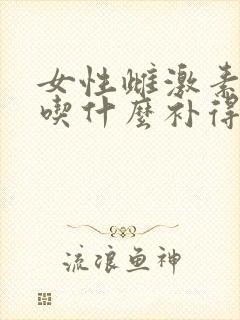 女性雌激素
喫什麼补得
流浪鱼神